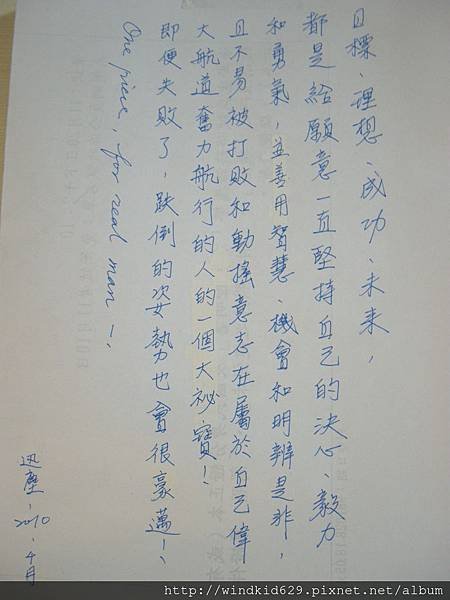 目標、理想、成功、未來，
都是給願意一直堅持自己的決心、毅力
和勇氣，並善用智慧、機會和明辨是非，
且不易被打敗和動搖意志在屬於自己偉
大航道奮力航行的人的一個大祕寶！
即便失敗了，跌倒的姿勢也會很豪邁！、
One piece, for real man 一！
迅塵，2010，4月
http://windkid629.pixnet.net/album